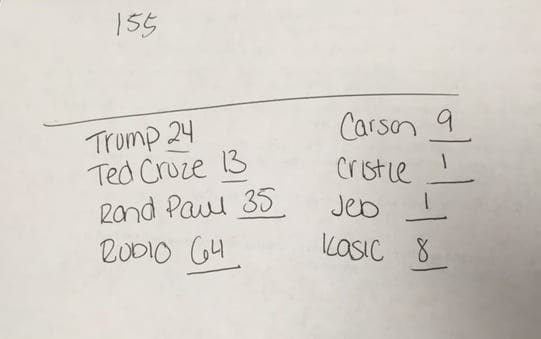 155
Trump 24
Ted Cruze 13
Rand Paul 35
RUbIO 64
Carson 9
Cristie 1
Jeb 1
Kasic 8